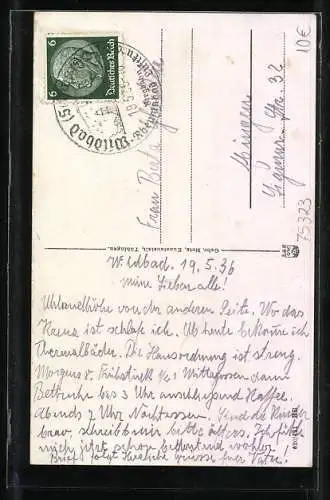 10€
6 Deutsches Reich 6
Wildbad (S
19.5.36
Frau
Sigmar. Str. 32
75323
Gebr. Metz, Kunstanstalt, Tübingen.
Wildbad. 19.5.36
meine Lieben alle!
Uhlandhöhe von der anderen Seite. Wo das
ist schlafe ich. Ab heute bekomme ich
Thermalbäder. Die Hausordnung ist streng.
Morgens 8. Frühstück ½1 Mittagessen dann
Bettruhe bis 3 Uhr anschliessend Kaffee.
Abends 7 Uhr Nachtessen. Seid die Kinder
brav, schreibt mir bitte öfters. Ich fühle
mich jetzt schon bedeutend wohler
Brief folgt Herzliche Grüsse Euer Vater!